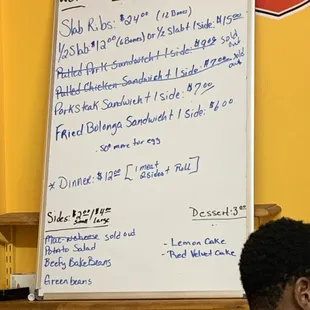 Slab Ribs: $24.00 (12 Bones)
1/2 Slab $12.00 (6 Bones) Or 1/2 Slab + 1 Side: $15.00
Pulled Pork Sandwich + 1 side: $9.00 sold out
Pulled Chicken Sandwich + 1 side: $7.00 sold out
Porksteak Sandwich + 1 side: $7.00
Fried Bolonga Sandwich + 1 Side: $6.00
. 50¢ more for egg
* Dinner: $12.00 [1 meat 2 sides + Roll]
Sides: $2.00/$4.00
Small Large
Mac-ncheese sold out
Potato Salad
Beefy Bake Beans
Green beans
Dessert: 3.00
- Lemon Cake
- Red Velvet Cake